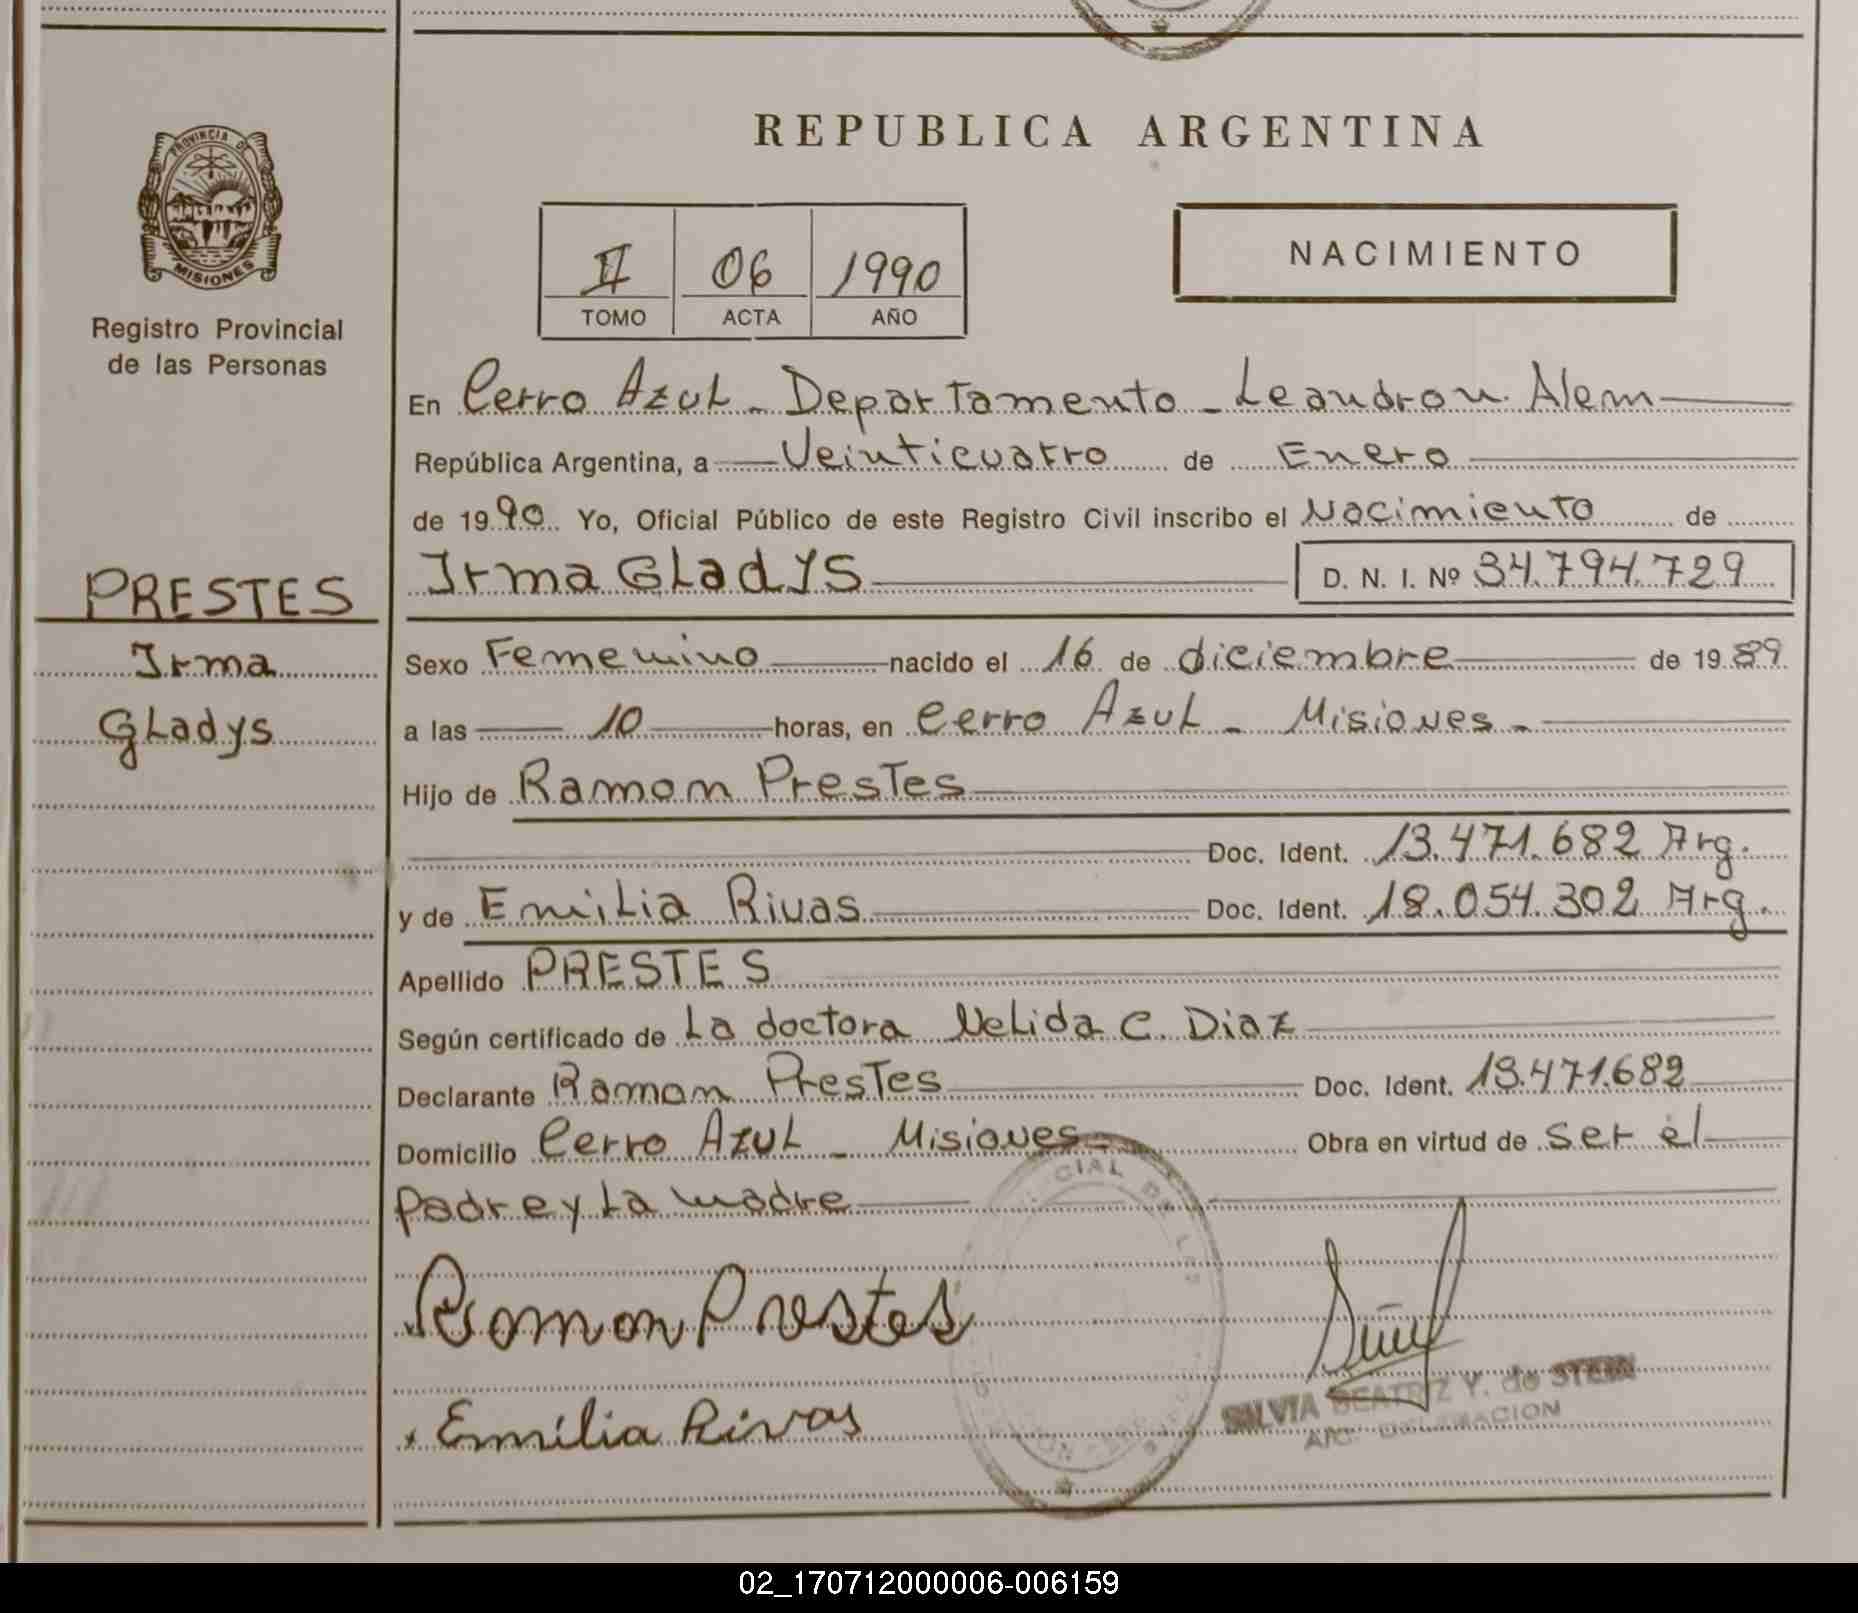 REPUBLICA ARGENTINA
PROVINCIA DE
MISIONES
Registro Provincial
de las Personas
II 06 1990
TOMO ACTA AÑO
NACIMIENTO
En Cerro Azul - Departamento - Leandro N. Alem
República Argentina, a Veinticuatro de Enero
de 1990 Yo, Oficial Público de este Registro Civil inscribo el Nacimiento de
Irma Gladys D. N. I. Nº 34.794.729
PRESTES
Irma
Gladys
Sexo Femenino nacido el 16 de diciembre de 1989
a las 10 horas, en Cerro Azul - Misiones -
Hijo de Ramon Prestes
Doc. Ident. 13.471.682 Arg.
y de Emilia Rivas Doc. Ident. 18.054.302 Arg.
Apellido PRESTES
Según certificado de La doctora Nelida C. Diaz
Declarante Ramon Prestes Doc. Ident. 13.471.682
Domicilio Cerro Azul - Misiones - Obra en virtud de ser el
padre y la madre
Ramon Prestes
Emilia Rivas
SILVIA BEATRIZ Y. de STEIN
A/C. DELEGACION
02_170712000006-006159